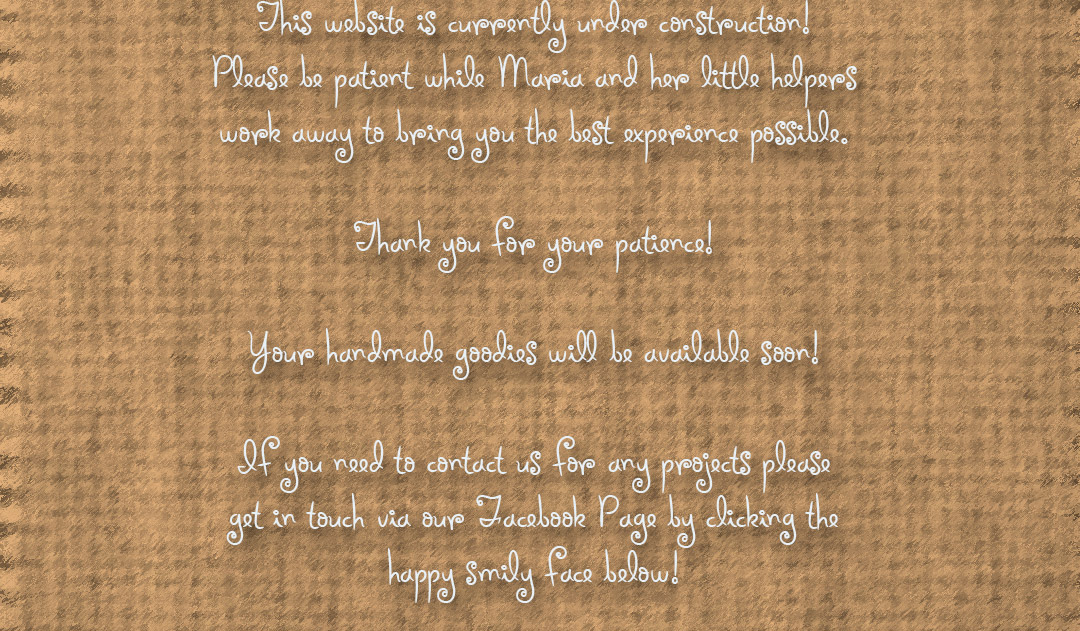 This website is currently under construction!
Please be patient while Maria and her little helpers
work away to bring you the best experience possible.
Thank you for your patience!
Your handmade goodies will be available soon!
If you need to contact us for any projects please
get in touch via our Facebook Page by clicking the
happy smily face below!